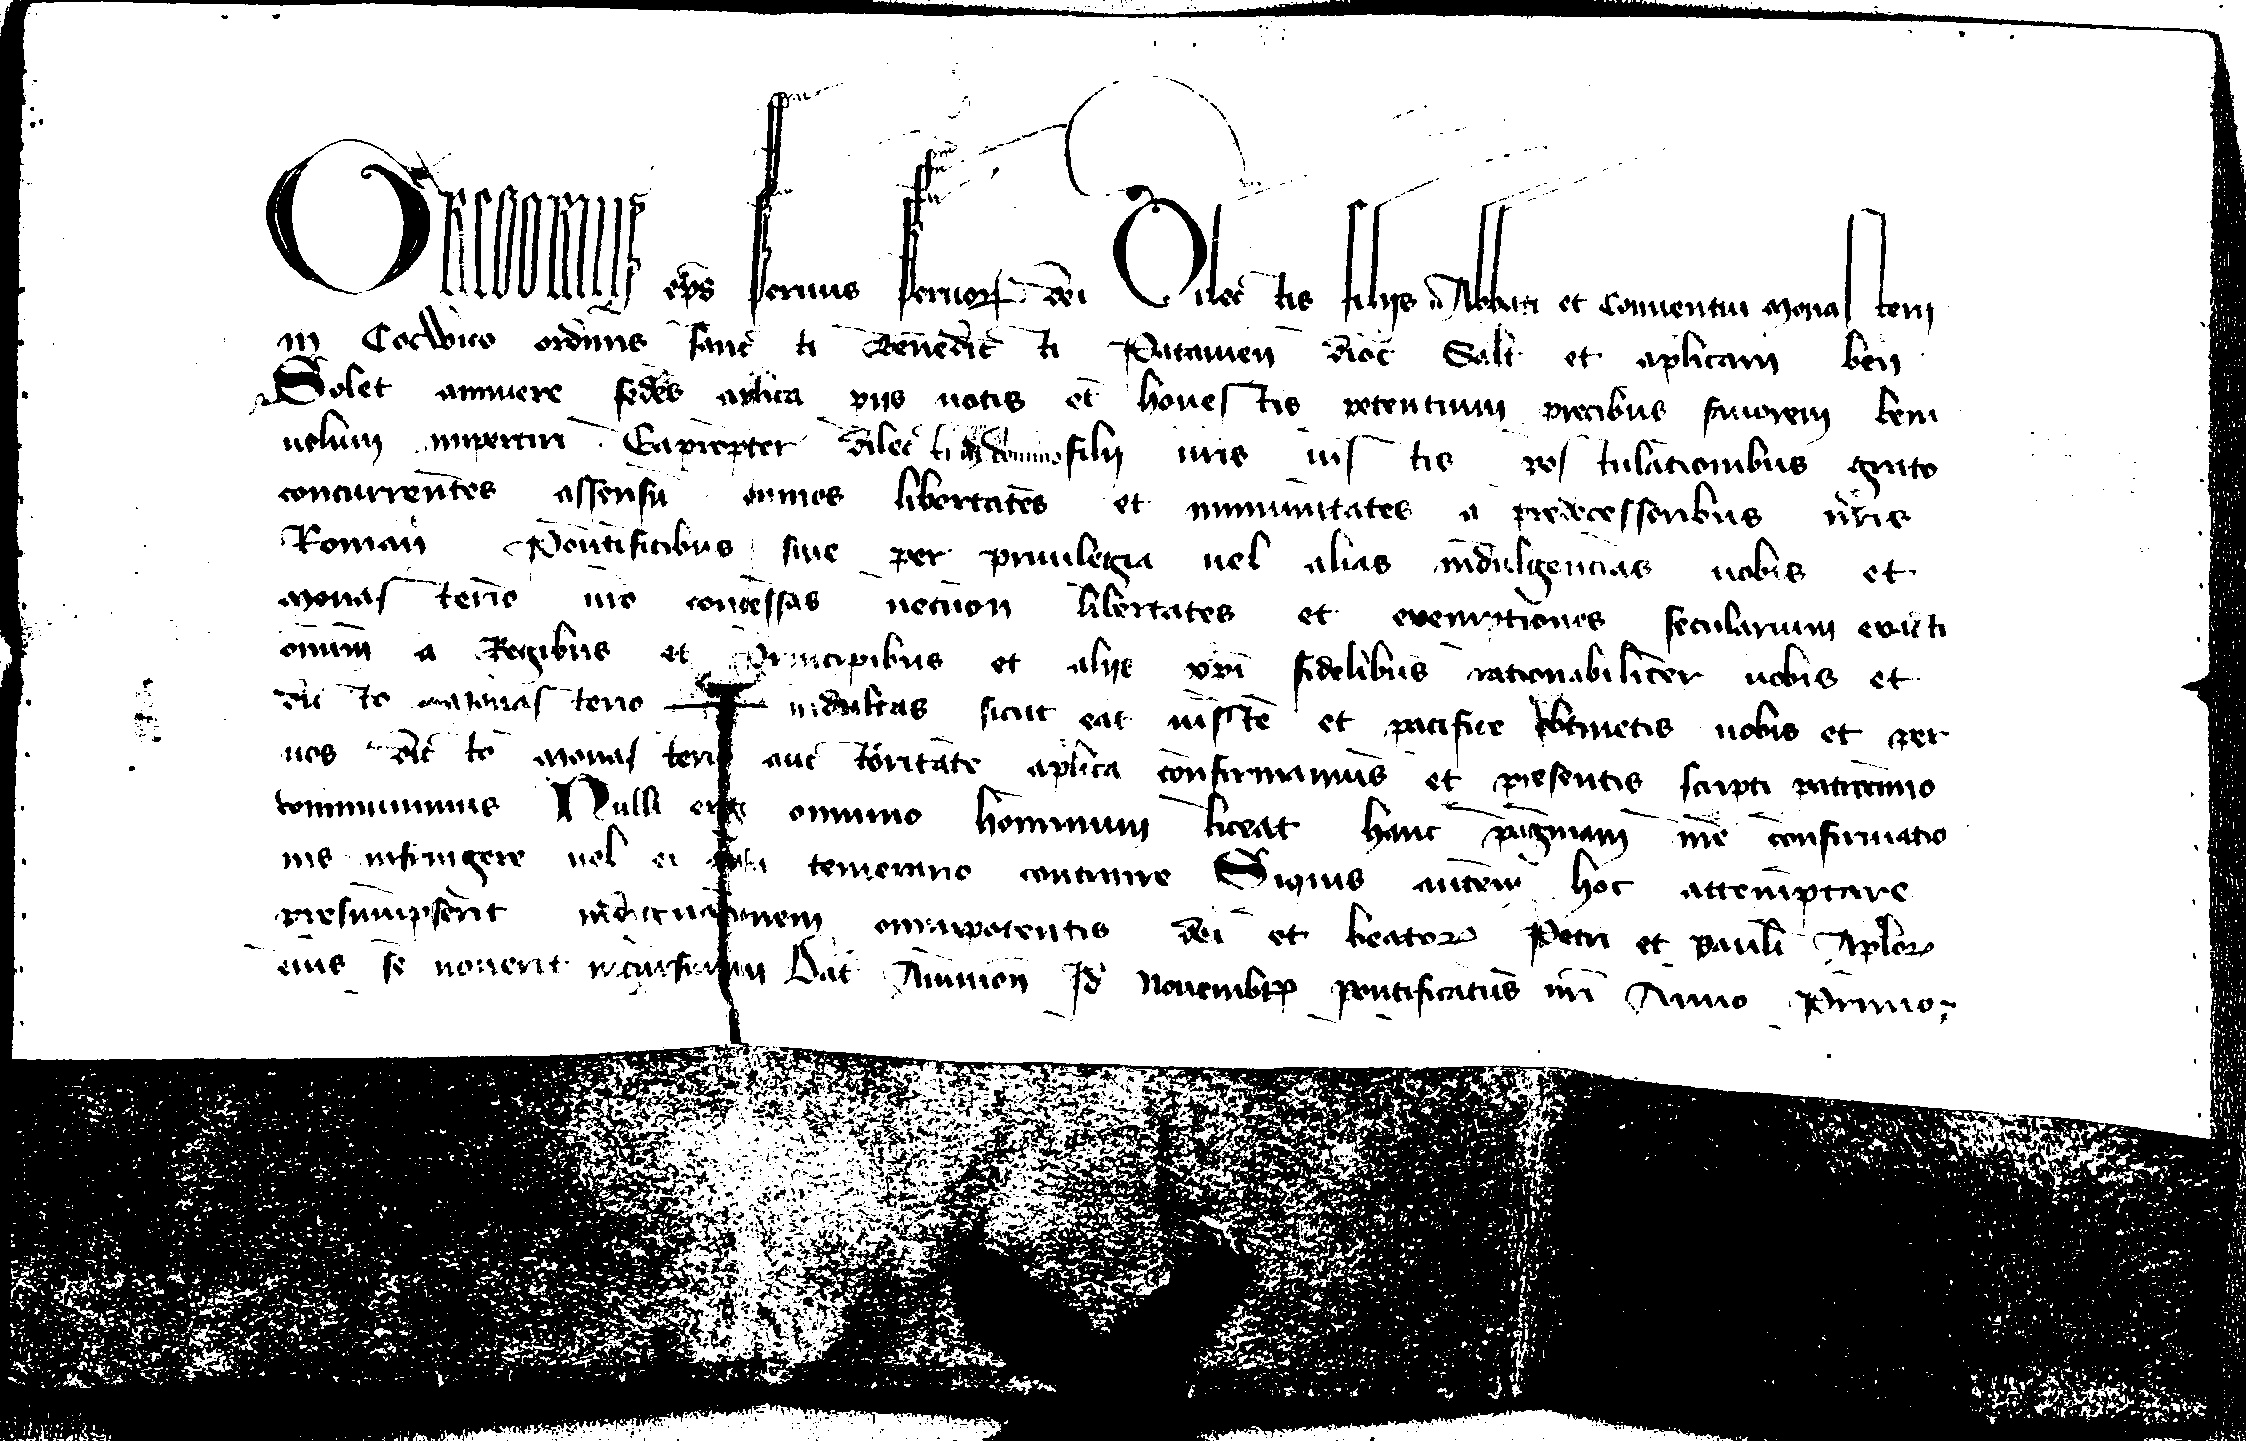 GREGORIUS ep̄s seruus seruoꝝ dei Dilectis filiis Abbati et Conuentui Monasterij
in Cotwico ordinis sancti Benedicti Patauien̄ dioc̄ Salt̄ et ap̄licam ben̄
Solet annuere sedes ap̄lica piis uotis et honestis petentium precibus fauorem beni
uolum impertiri Eapropter dilecti in domino filii ur̄is iustis postulationibus grato
concurrentes assensu omnes libertates et immunitates a predecessoribus nr̄is
Roman̄ Pontificibus siue per priuilegia uel alias indulgencias uobis et
Monasterio ur̄o concessas necnon libertates et exemptiones secularium exacti
onum a Regibus et Principibus et aliis xp̄i fidelibus rationabiliter uobis et
dicto Monasterio indultas sicut eas iuste et pacifice obtinetis uobis et per
uos dicto Monasterio auctoritate ap̄lica confirmamus et presentis scripti patrocinio
communimus Nulli ergo omnino hominum liceat hanc paginam nr̄e confirmatio
nis infringere uel ei ausu temerario contraire Siquis autem hoc attemptare
presumpserit indignationem omnipotentis dei et beatoꝝ Petri et Pauli Ap̄loꝝ
eius se nouerit incursurum Dat̄ Auinion̄ Id̄ Nouembr̄ pontificatus nr̄i Anno Primo